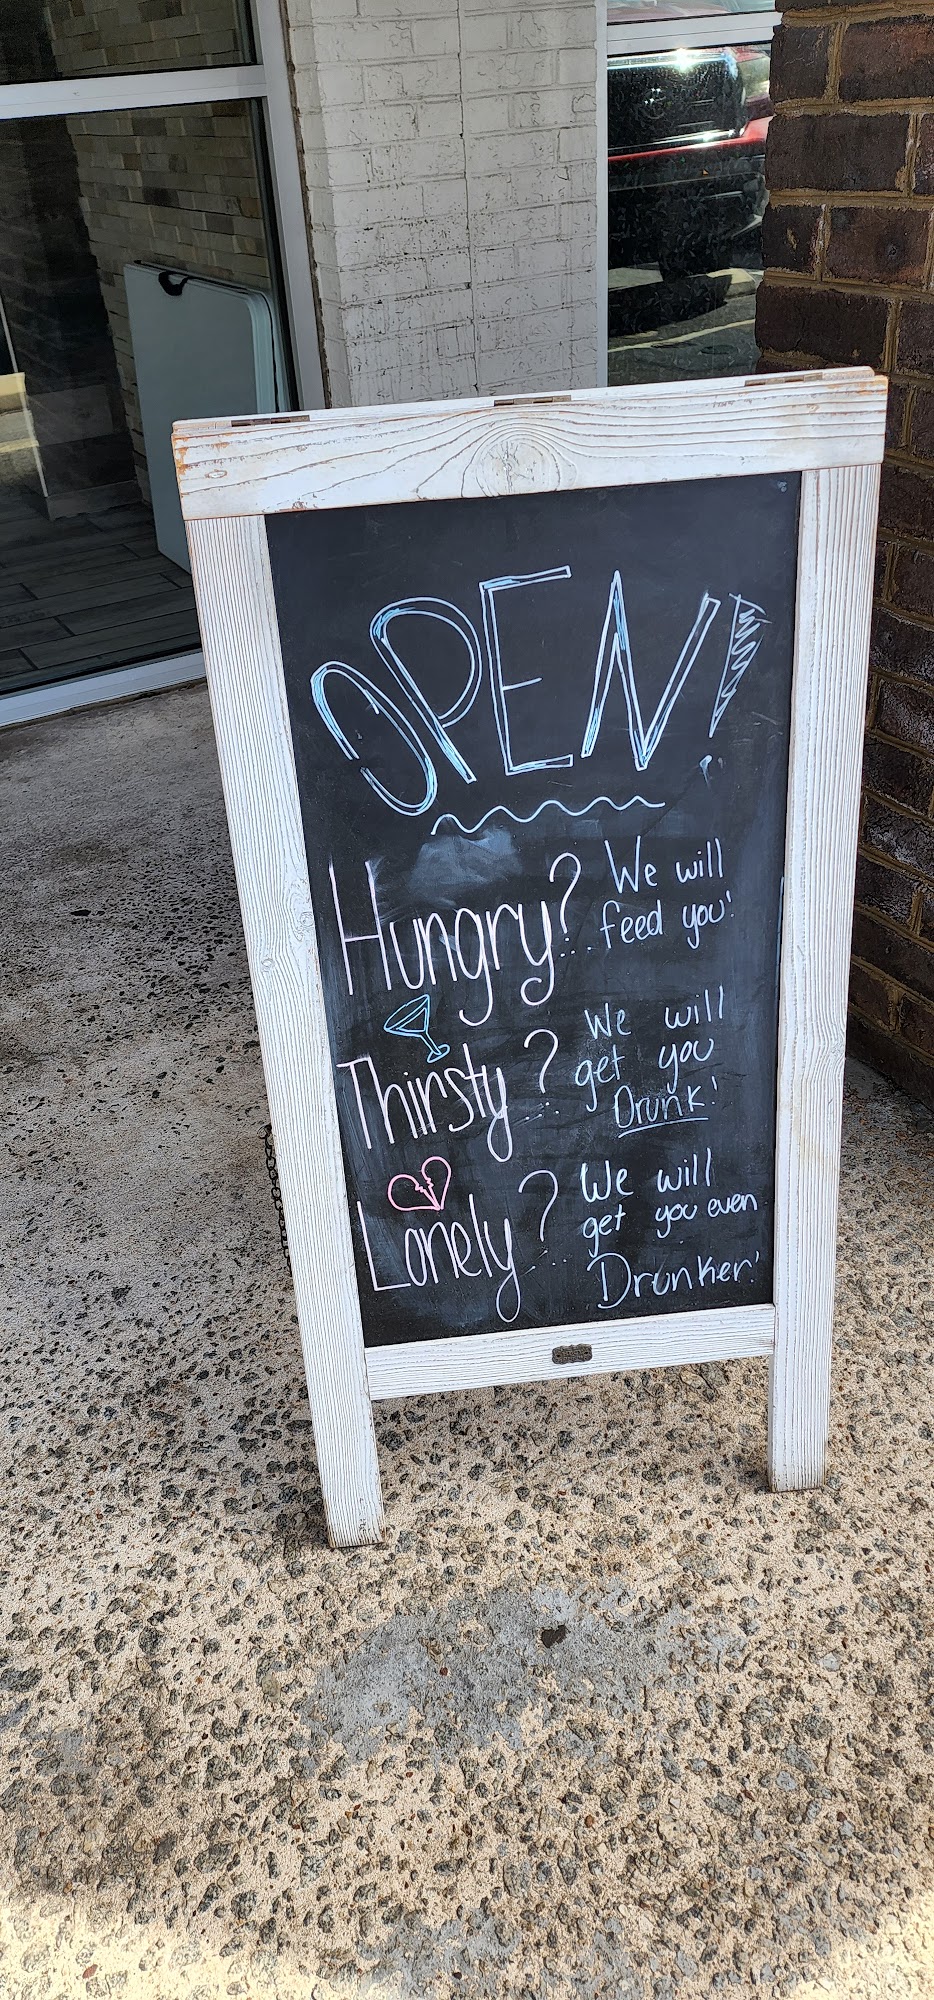 OPEN!
Hungry?... We will
feed you!
Thirsty?... We will
get you
Drunk!
Lonely?... We will
get you even
Drunker!